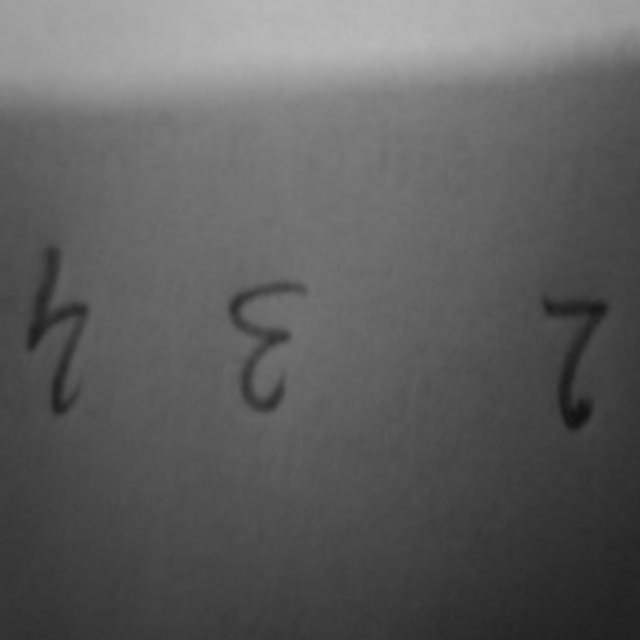 2 3 4